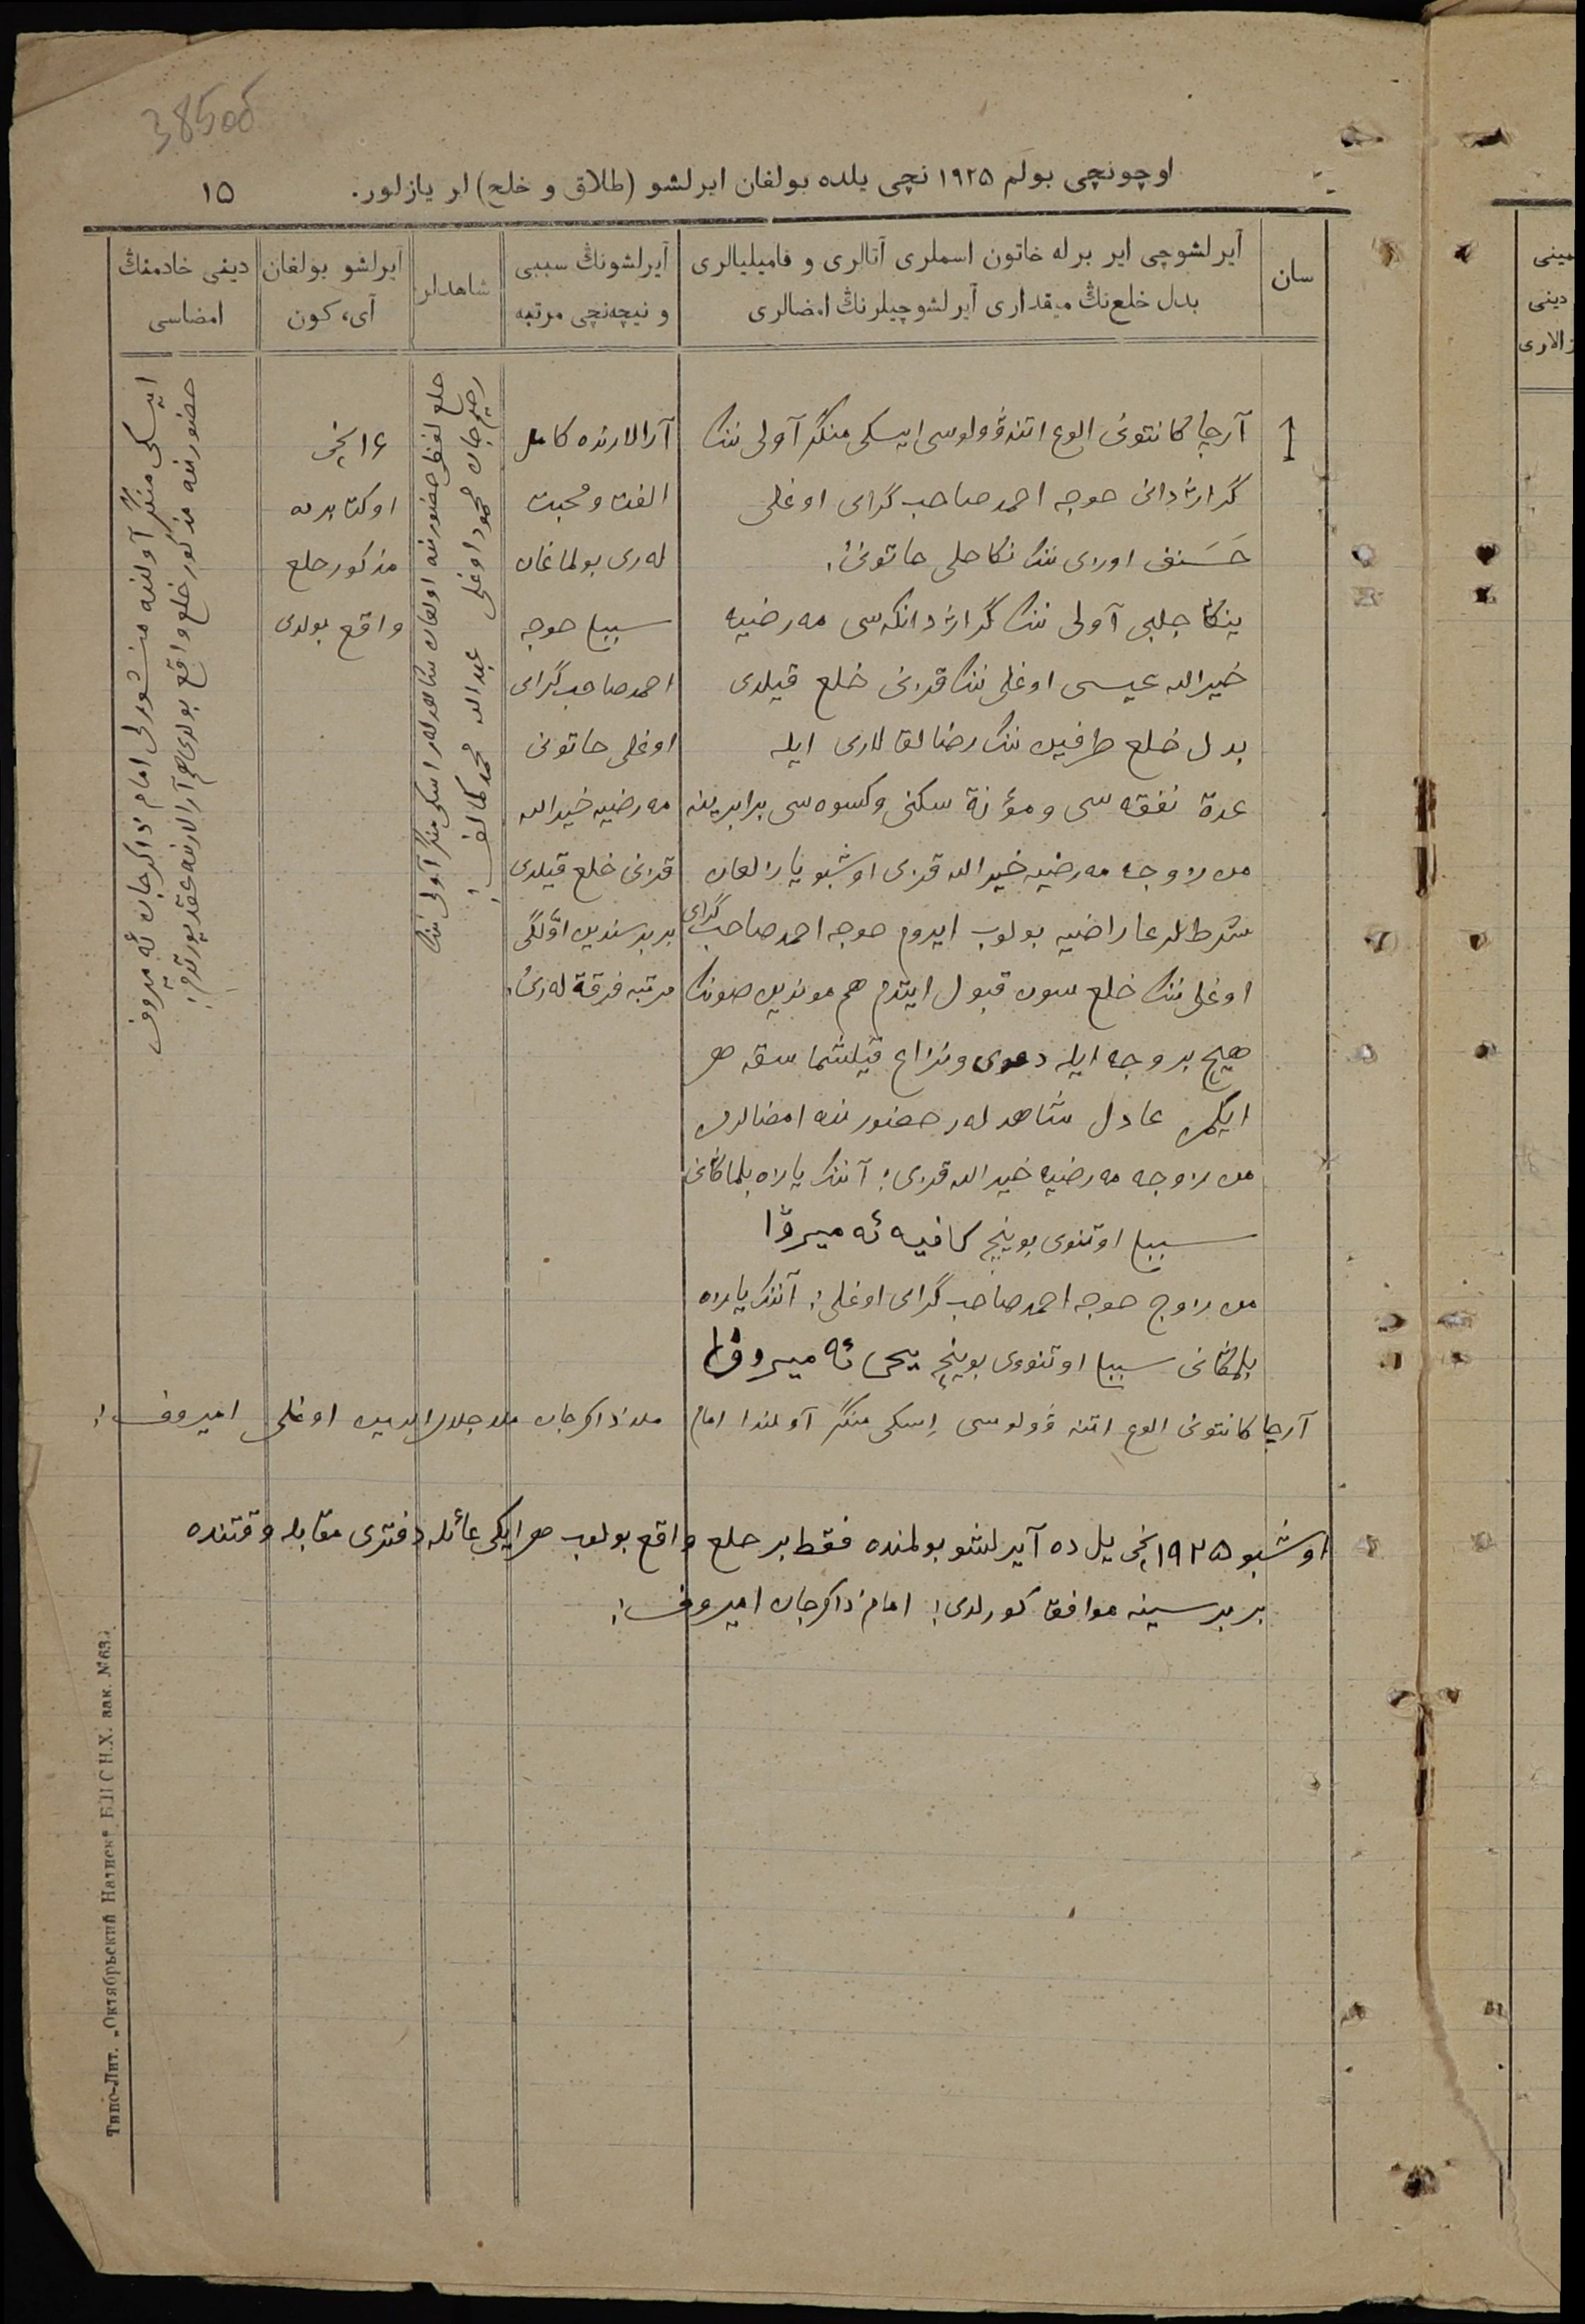 385об
اوچونچی بولم ۱۹۲۵ نچی یلده بولغان ایرلشو (طلاق و خلع) لر یازلور.
۱۵
سان
آیرلشوچی ایر برله خاتون اسملری آتالری و فامیلیالری
بدل خلع‌نڭ میقداری آیرلشوچیلرنڭ امضالری
آیرلشونڭ سببی
و نیچه‌نچی مرتبه
شاهدلر
آیرلشو بولغان
آی، کون
دینی خادمنڭ
امضاسی
1
آرچا کانتونی الوع اتنه وُولوسی ایسکی منگر آولی ننک
گراژدانی خوجه احمد صاحب گرای اوغلی
حَسَنف اوزی ننک نکاحلی خاتونی؛
ینکا جلبی آولی ننک گراژدانکه‌سی مه‌رضیه
خیرالله عیسی اوغلی ننک قزنی خلع قیلدی
بدل خلع طرفین ننک رضالقلاری ایله
عدة نفقه‌سی و مؤنة سکنی و کسوه‌سی برابرینه
من زوجه مه‌رضیه خیرالله قزی اوشبو یازلغان
شرطلرغا راضیه بولوب ایروم خوجه احمد صاحب گرای
اوغلی ننک خلع سون قبول ایتدم هم موندین صونک
هیچ بر وجه ایله دعوی و نزاع قیلشماسقه هر
ایکمز عادل شاهدلەر حضورنده امضالدق
من زوجه مه‌رضیه خیرالله قزی؛ آننک یازه بلماکانی
سببلی اوتنوی بوینچه کافیه ئه‌میروڤا
من زوج خوجه احمد صاحب گرای اوغلی؛ آننک یازه
بلمکانی سببلی اوتنووی بوینچه یحیی ئه‌میروف
آرالارنده کامل
الفت و محبت
لەری بولماغان
سببلی خوجه
احمد صاحب گرای
اوغلی خاتونی
مه‌رضیه خیرالله
قزنی خلع قیلدی
بر برسندین اوّلگی
مرتبه فرقة لەری؛
خلع لفظی حضورنده اولغان شاهدلەر اسکی منگر آولی ننک
رحیم جان محمود اوغلی عبدالله محمد کمالف؛
۱۶نچی
اوکتابرده
مذکور خلع
واقع بولدی
ایسکی منگر آولنده منشورلی امام ذاکرجان ئه‌میروف
حضورنده مذکور خلع واقع بولدی هم آرالارنده عقد یورتدم؛
آرچا کانتونی الوع اتنه وُولوسی اِسکی منگر آولندا امام ملا ذاکرجان ملا جلال‌الدین اوغلی امیروف؛
اوشبو ۱۹۲۵نچی یل ده آیرلشو بولمنده فقط بر خلع واقع بولوب هر ایکی عائله دفتری مقابله وقتنده
بر برسینه موافق کورلدی؛ امام ذاکرجان امیروف؛
Типо-Лит. „Октябрьский Натиск“ БЦСНХ. зак. №63
مینی
دینی
زالاری